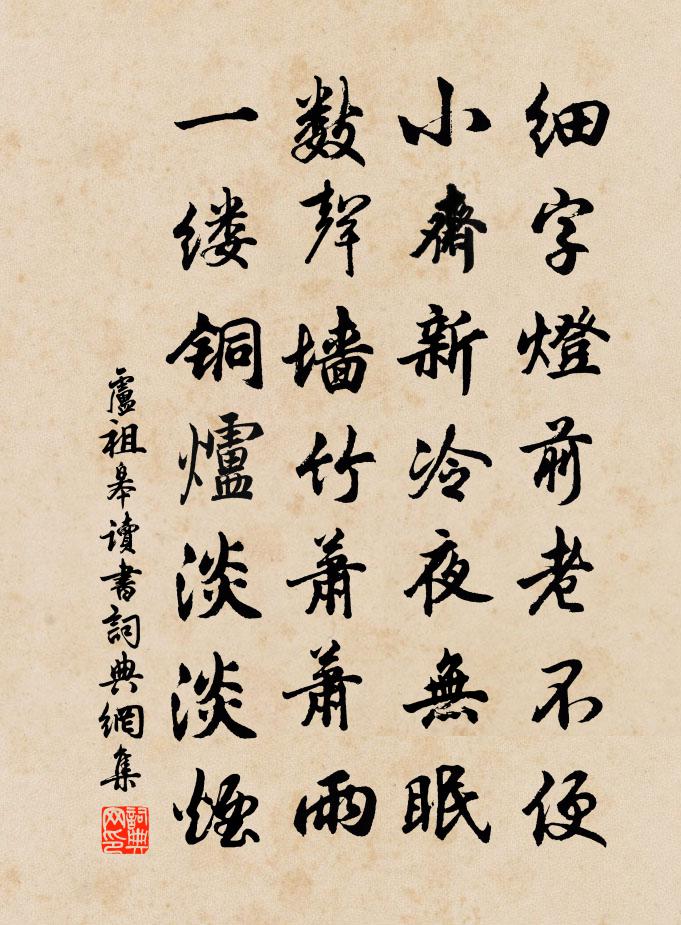 细字燈前老不便
小齋新冷夜無眠
数聲墙竹蕭蕭雨
一缕铜爐淡淡煙
盧祖皋讀書詞典網集
詞典网印